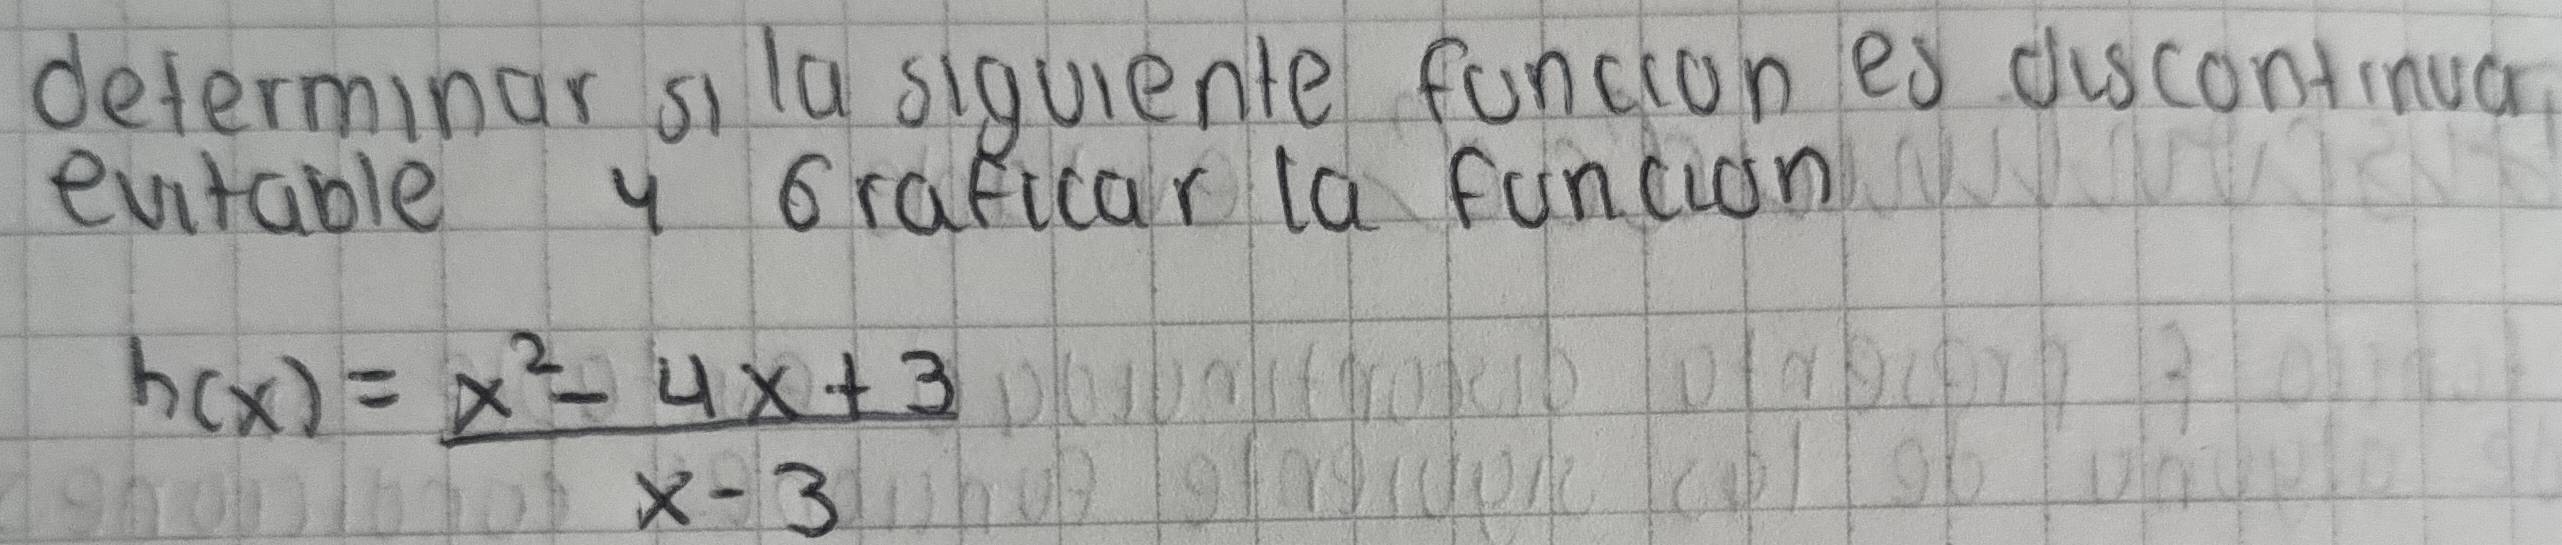 determinar si la siguiente funcion es discontinua
evitable y Graficar la funcion
h(x) = x² - 4x + 3
x - 3